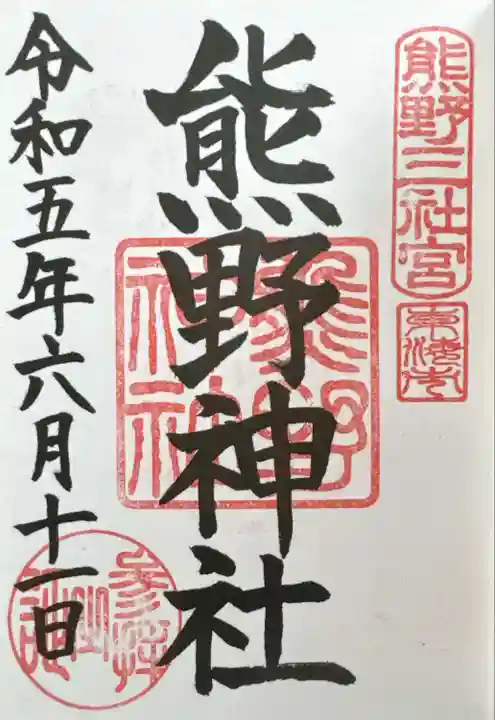 熊野三社宮
東海市
熊野神社
熊野神社
令和五年六月十一日
參拝之証